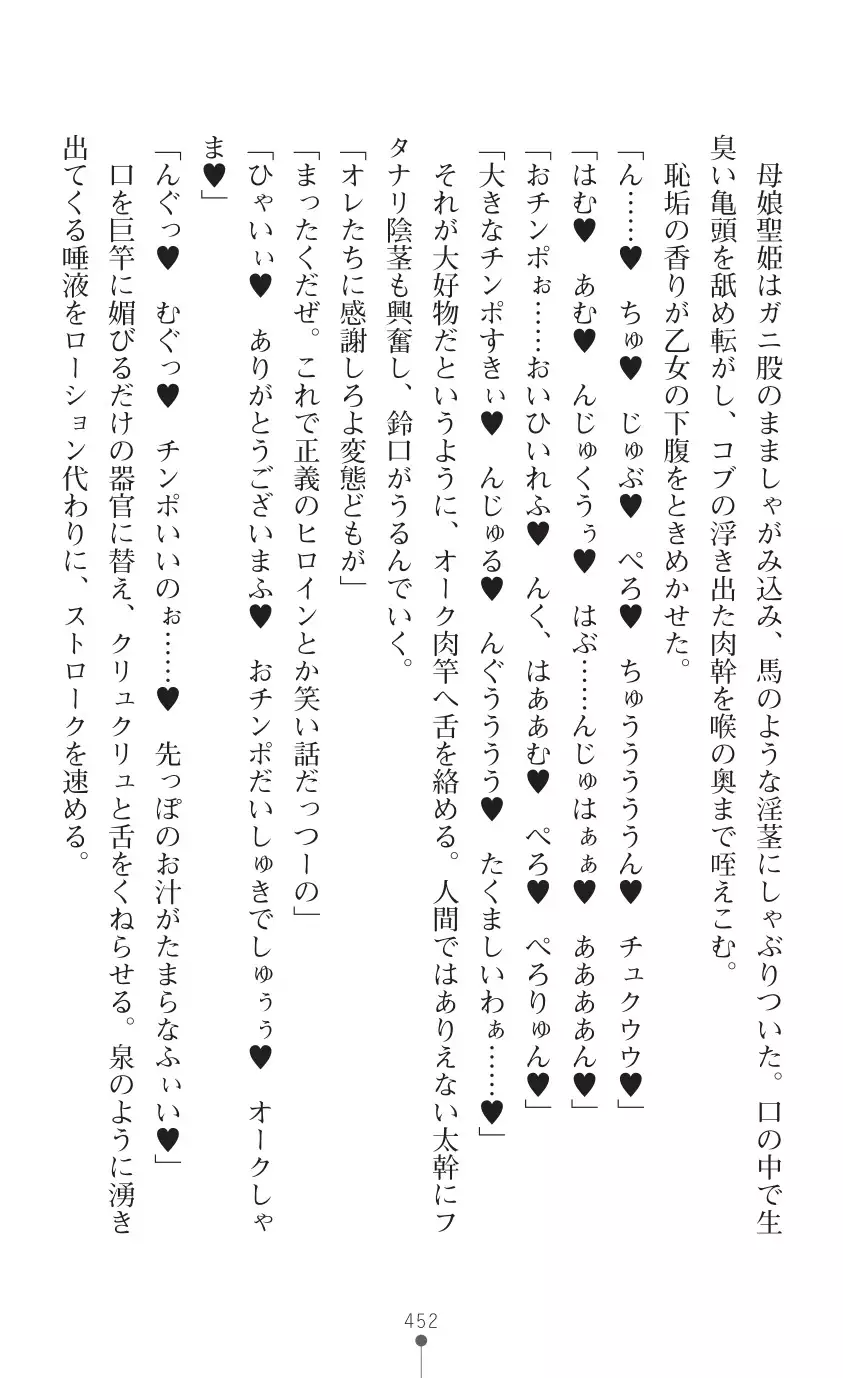 母娘聖姫はガニ股のまましゃがみ込み、馬のような淫茎にしゃぶりついた。口の中で生
臭い亀頭を舐め転がし、コブの浮き出た肉幹を喉の奥まで咥えこむ。
恥垢の香りが乙女の下腹をときめかせた。
「ん……♥　ちゅ♥　じゅぶ♥　ぺろ♥　ちゅうううううん♥　チュクウウ♥」
「はむ♥　あむ♥　んじゅくうぅ♥　はぶ……んじゅはぁぁ♥　ああああん♥」
「おチンポぉ……おいひいれふ♥　んく、はああむ♥　ぺろ♥　ぺろりゅん♥」
「大きなチンポすきぃ♥　んじゅる♥　んぐうううう♥　たくましいわぁ……♥」
それが大好物だというように、オーク肉竿へ舌を絡める。人間ではありえない太幹にフ
タナリ陰茎も興奮し、鈴口がうるんでいく。
「オレたちに感謝しろよ変態どもが」
「まったくだぜ。これで正義のヒロインとか笑い話だっつーの」
「ひゃいぃ♥　ありがとうございまふ♥　おチンポだいしゅきでしゅぅぅ♥　オークしゃ
ま♥」
「んぐっ♥　むぐっ♥　チンポいいのぉ……♥　先っぽのお汁がたまらなふぃい♥」
口を巨竿に媚びるだけの器官に替え、クリュクリュと舌をくねらせる。泉のように湧き
出てくる唾液をローション代わりに、ストロークを速める。
452